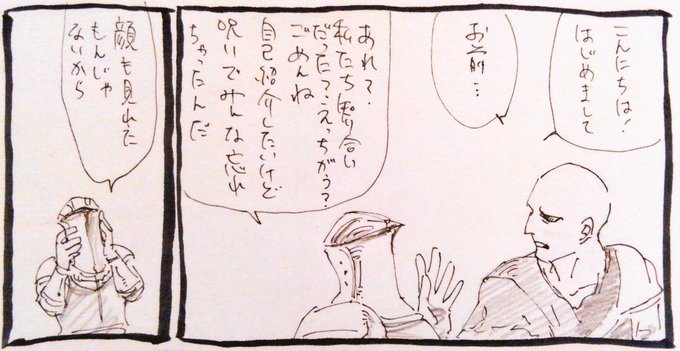 こんにちは!
はじめまして
お前…
あれ?
私たち知り合い
だった?えっちがう?
ごめんね
自己紹介したいけど
呪いでみんな忘れ
ちゃったんだ
顔も見れた
もんじゃ
ないから